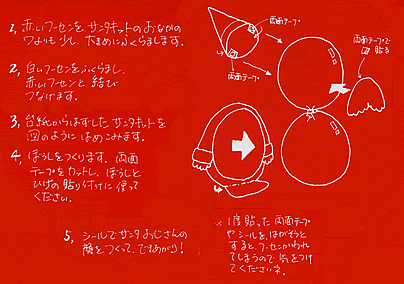 1, 赤いフーセンを、サンタキットのおなかの
ワよりも少し大きめにふくらまします。
2, 白いフーセンをふくらまし、
赤いフーセンと結び
つなげます。
3, 台紙からはずしたサンタキットを
図のようにはめこみます。
4, ぼうしをつくります。両面
テープをカットし、ぼうしと
ひげの貼り付けに使って
ください。
5, シールでサンタおじさんの
顔をつくって、できあがり!
両面テープ
両面テープ
両面テープで
貼る
※1度貼った両面テープ
やシールをはがそうと
すると、フーセンがわれ
てしまうので気をつけ
てくださいネ。